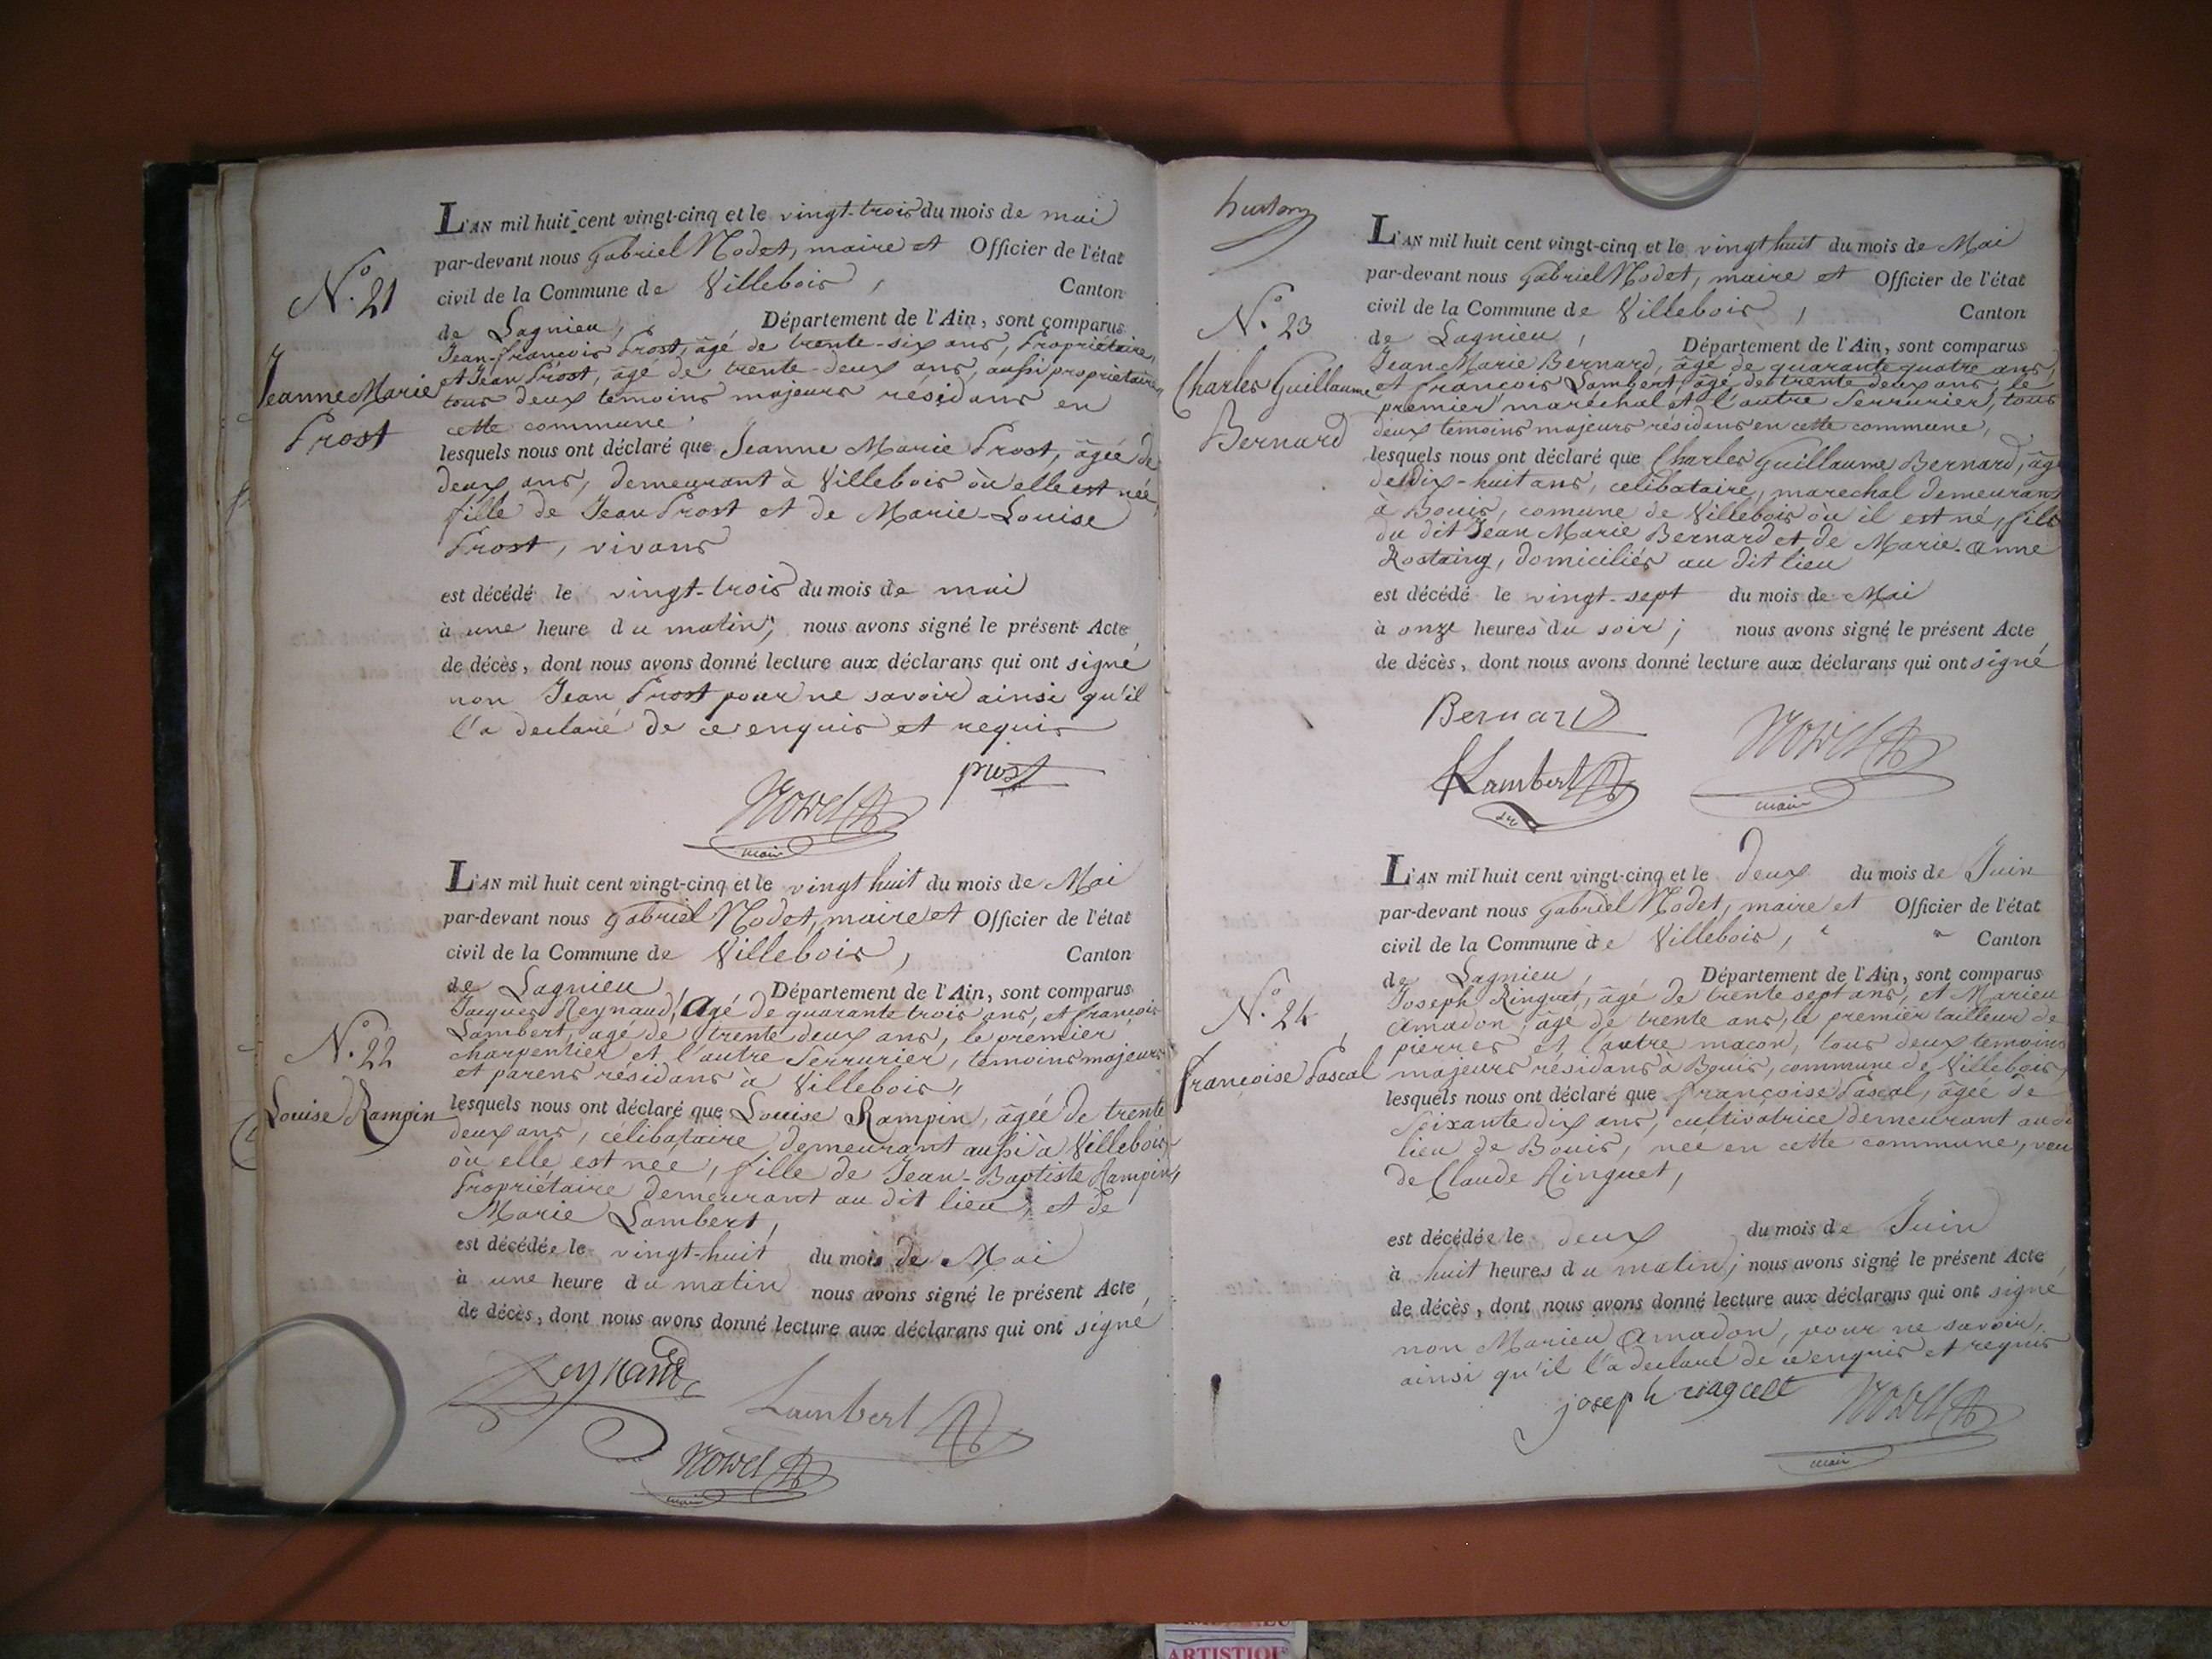 L'AN mil huit cent vingt-cinq et le vingt-trois du mois de mai
par-devant nous Gabriel Nodet, maire et Officier de l'état
civil de la Commune de Villebois, Canton
de Lagnieu, Département de l'Ain, sont comparus
Jean-françois Prost, âgé de trente-six ans, Propriétaire,
et Jean Prost, âgé de trente-deux ans, aussi propriétaire,
tous deux témoins majeurs résidans en
cette commune
lesquels nous ont déclaré que Jeanne Marie Prost, âgée de
deux ans, demeurant à Villebois où elle est née,
fille de Jean Prost et de Marie-Louise
Prost, vivans
est décédé le vingt-trois du mois de mai
à une heure du matin; nous avons signé le présent Acte
de décès, dont nous avons donné lecture aux déclarans qui ont signé
non Jean Prost pour ne savoir ainsi qu'il
l'a declaré de ce enquis et requis
prost
Nodet
maire
N.° 21
Jeanne Marie
Prost
L'AN mil huit cent vingt-cinq et le vingt huit du mois de Mai
par-devant nous Gabriel Nodet, maire et Officier de l'état
civil de la Commune de Villebois, Canton
de Lagnieu, Département de l'Ain, sont comparus
Jacques Reynaud, Agé de quarante trois ans, et françois
Lambert, agé de trente deux ans, le premier
charpentier et l'autre Serrurier, temoins majeurs
et parens résidans à Villebois,
lesquels nous ont déclaré que Louise Rampin, âgée de trente
deux ans, célibataire demeurant aussi à Villebois
où elle est née, fille de Jean-Baptiste Rampin,
Propriétaire demeurant au dit lieu, et de
Marie Lambert,
est décédée le vingt-huit du mois de Mai
à une heure du matin nous avons signé le présent Acte
de décès, dont nous avons donné lecture aux déclarans qui ont signé
Reynaud
Lambert
Nodet
maire
N.° 22
Louise Rampin
N.° 23
Charles Guillaume
Bernard
L'AN mil huit cent vingt-cinq et le vingt huit du mois de Mai
par-devant nous Gabriel Nodet, maire et Officier de l'état
civil de la Commune de Villebois, Canton
de Lagnieu, Département de l'Ain, sont comparus
Jean Marie Bernard, âgé de quarante quatre ans,
et françois Lambert, âgé de trente deux ans, le
premier maréchal et l'autre Serrurier, tous
deux témoins majeurs résidans en cette commune,
lesquels nous ont déclaré que Charles Guillaume Bernard, âgé
de dix-huit ans, celibataire, marechal demeurant
à Bouis, comune de Villebois où il est né, fils
du dit Jean Marie Bernard et de Marie-Anne
Rostaing, domiciliés au dit lieu
est décédé le vingt-sept du mois de Mai
à onze heures du soir; nous avons signé le présent Acte
de décès, dont nous avons donné lecture aux déclarans qui ont signé
Bernard
Lambert
Nodet
maire
L'AN mil huit cent vingt-cinq et le deux du mois de Juin
par-devant nous Gabriel Nodet, maire et Officier de l'état
civil de la Commune de Villebois, Canton
de Lagnieu, Département de l'Ain, sont comparus
Joseph Ringuet, âgé de trente sept ans, et Marieu
Amadon, âgé de trente ans, le premier tailleur de
pierres et l'autre macon, tous deux temoins
majeurs résidans à Bouis, commune de Villebois,
lesquels nous ont déclaré que françoise Pascal, âgée de
Soixante dix ans, cultivatrice demeurant au dit
lieu de Bouis, née en cette commune, veuv
de Claude Ringuet,
est décédée le deux du mois de Juin
à huit heures du matin; nous avons signé le présent Acte
de décès, dont nous avons donné lecture aux déclarans qui ont signé
non Marieu Amadon, pour ne savoir,
ainsi qu'il l'a declaré de ce enquis et requis
joseph ringuet
Nodet
maire
N.° 24
francoise Pascal
ARTISTIQUE